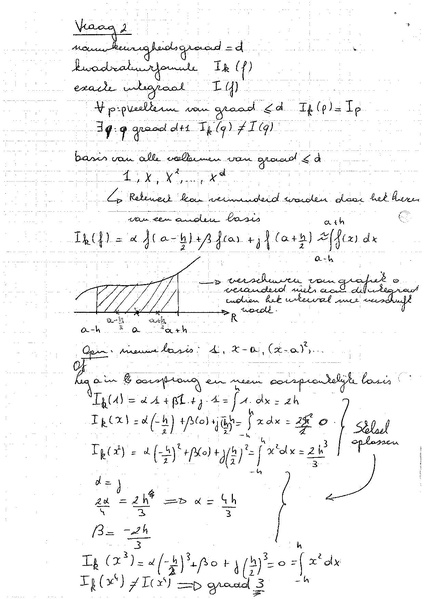 Vraag 2
nauwkeurigheidsgraad = d
kwadratuurformule I_k(f)
exacte integraal I(f)
∀ p: p veelterm van graad ≤ d I_k(p) = I_p
∃ q: q graad d+1 I_k(q) ≠ I(q)
basis van alle veeltermen van graad ≤ d
1, x, x², ..., x^d
↳ Rekenwerk kan verminderd worden door het kiezen
van een andere basis
I_k(f) = α f(a - h/2) + β f(a) + γ f(a + h/2) ≈ ∫_{a-h}^{a+h} f(x) dx
→ verschuiven van grafiek
verandert niets aan de integraal
indien het interval mee verschuift
wordt.
a-h a-h/2 a a+h/2 a+h R
Opm: nieuwe basis: 1, x-a, (x-a)², ...
Of
leg a in oorsprong en neem oorspronkelijke basis
I_k(1) = α 1 + β 1 + γ · 1 = ∫_{-h}^{h} 1 · dx = 2h
I_k(x) = α(-h/2) + β(0) + γ(h/2) = ∫_{-h}^{h} x dx = 0
I_k(x²) = α(-h/2)² + β(0) + γ(h/2)² = ∫_{-h}^{h} x² dx = 2h³/3
Stelsel
oplossen
α = γ
2α/4 = 2h/3 ⟹ α = 4h/3
β = -2h/3
I_k(x³) = α(-h/2)³ + β 0 + γ(h/2)³ = 0 = ∫_{-h}^{h} x² dx
I_k(x⁴) ≠ I(x⁴) ⟹ graad 3